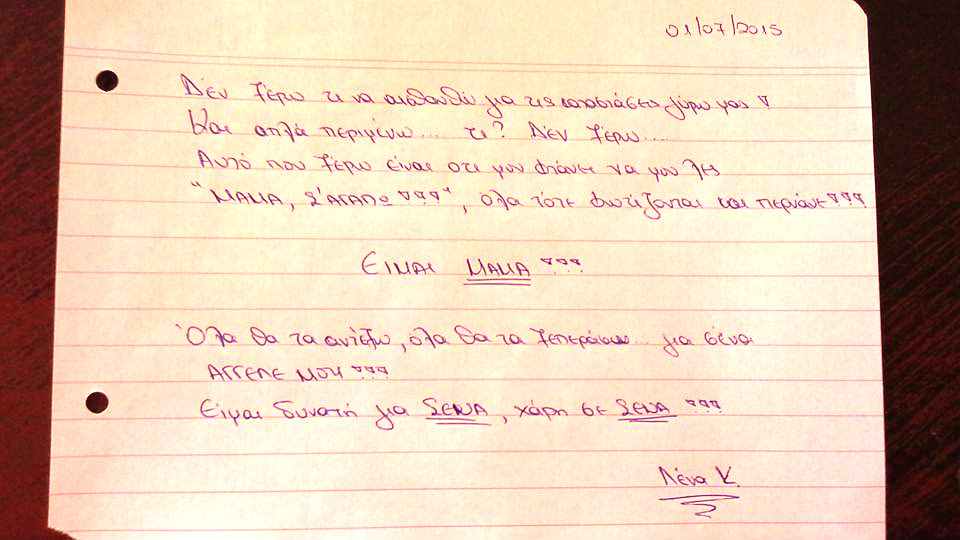 01/07/2015
Δεν ξέρω τι να αισθανθώ για τις καταστάσεις γύρω μας
Και απλά περιμένω.... τι? Δεν ξέρω....
Αυτό που ξέρω είναι οτι μου φτάνει να μου λες
"ΜΑΜΑ, Σ'ΑΓΑΠΩ ♡♡♡", όλα τότε φωτίζονται και περνάνε ♡♡♡
ΕΙΜΑΙ ΜΑΜΑ ♡♡♡
Όλα θα τα αντέξω, όλα θα τα ξεπεράσω... για σένα
ΑΓΓΕΛΕ ΜΟΥ ♡♡♡
Είμαι δυνατή για ΣΕΝΑ, χάρη σε ΣΕΝΑ ♡♡♡
Λένα Κ.